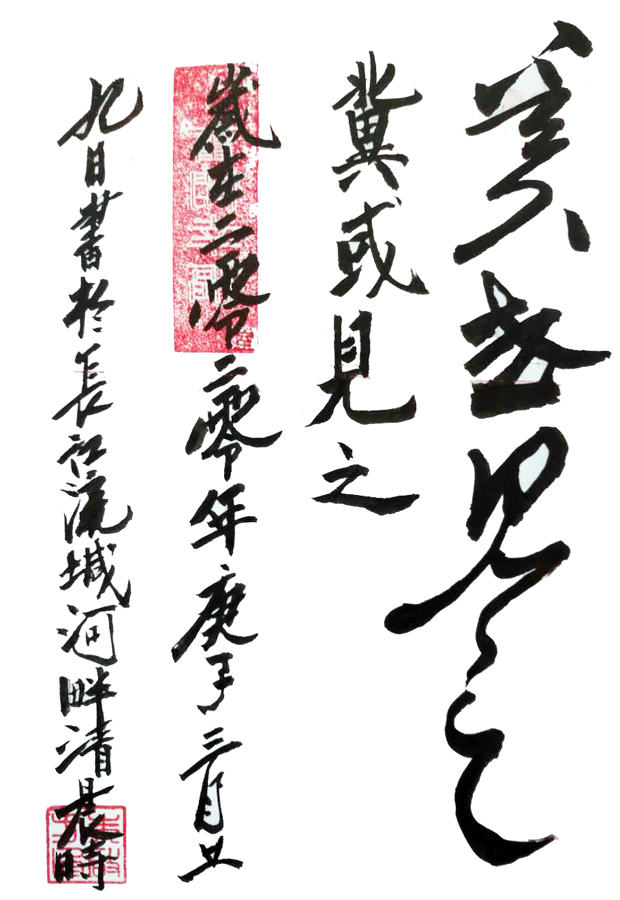 冀或見之
冀或見之
歲在二零二零年庚子三月廿
九日書於長江流域河畔清晨時